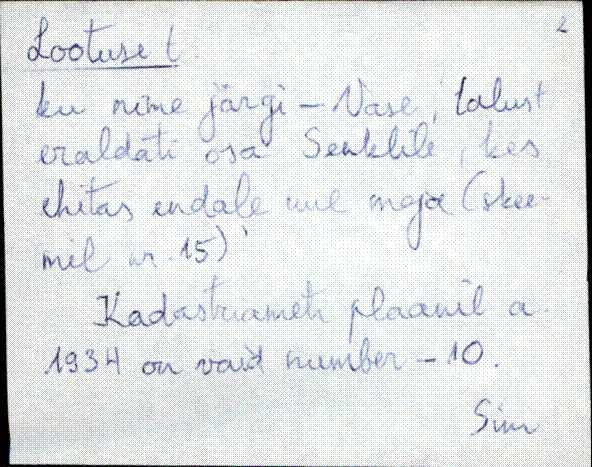 2
Lootuse t.
ku nime järgi - Vase, talust
eraldati osa Senklile, kes
ehitas endale uue maja (skee-
mil nr. 15)
Kadastriameti plaanil a.
1934 on vaid number - 10.